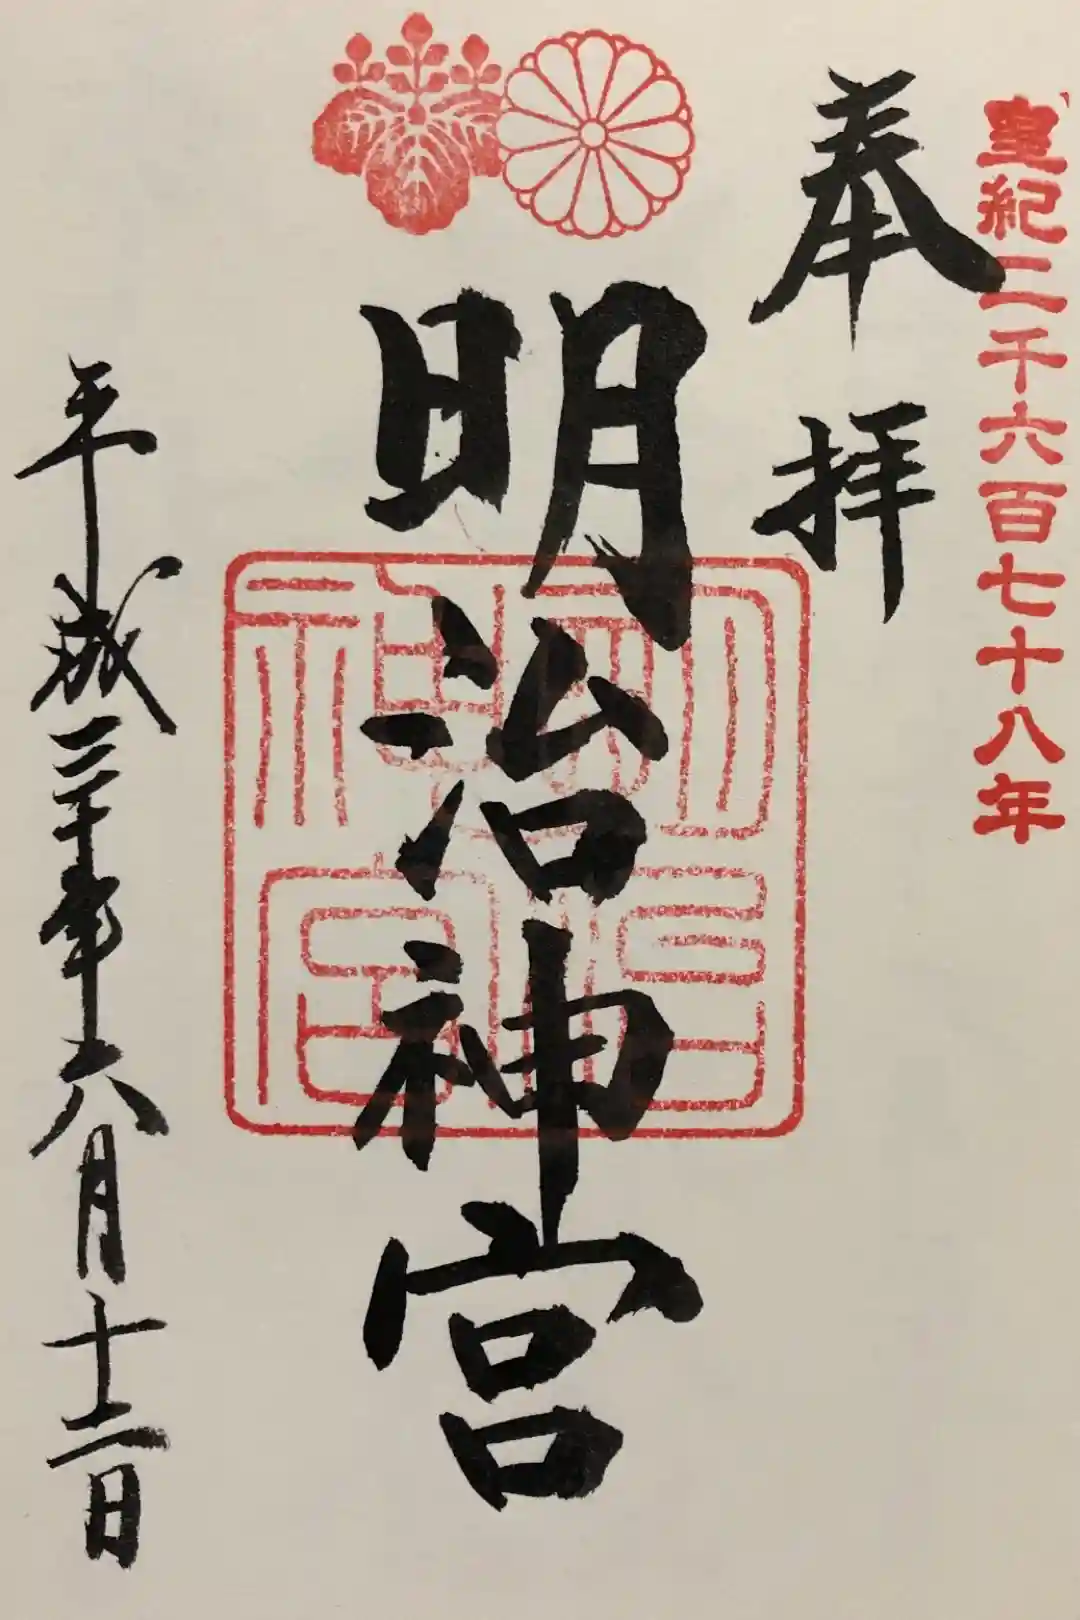 皇紀二千六百七十八年
奉拝
明治神宮
明治神宮
平成三十年六月十二日